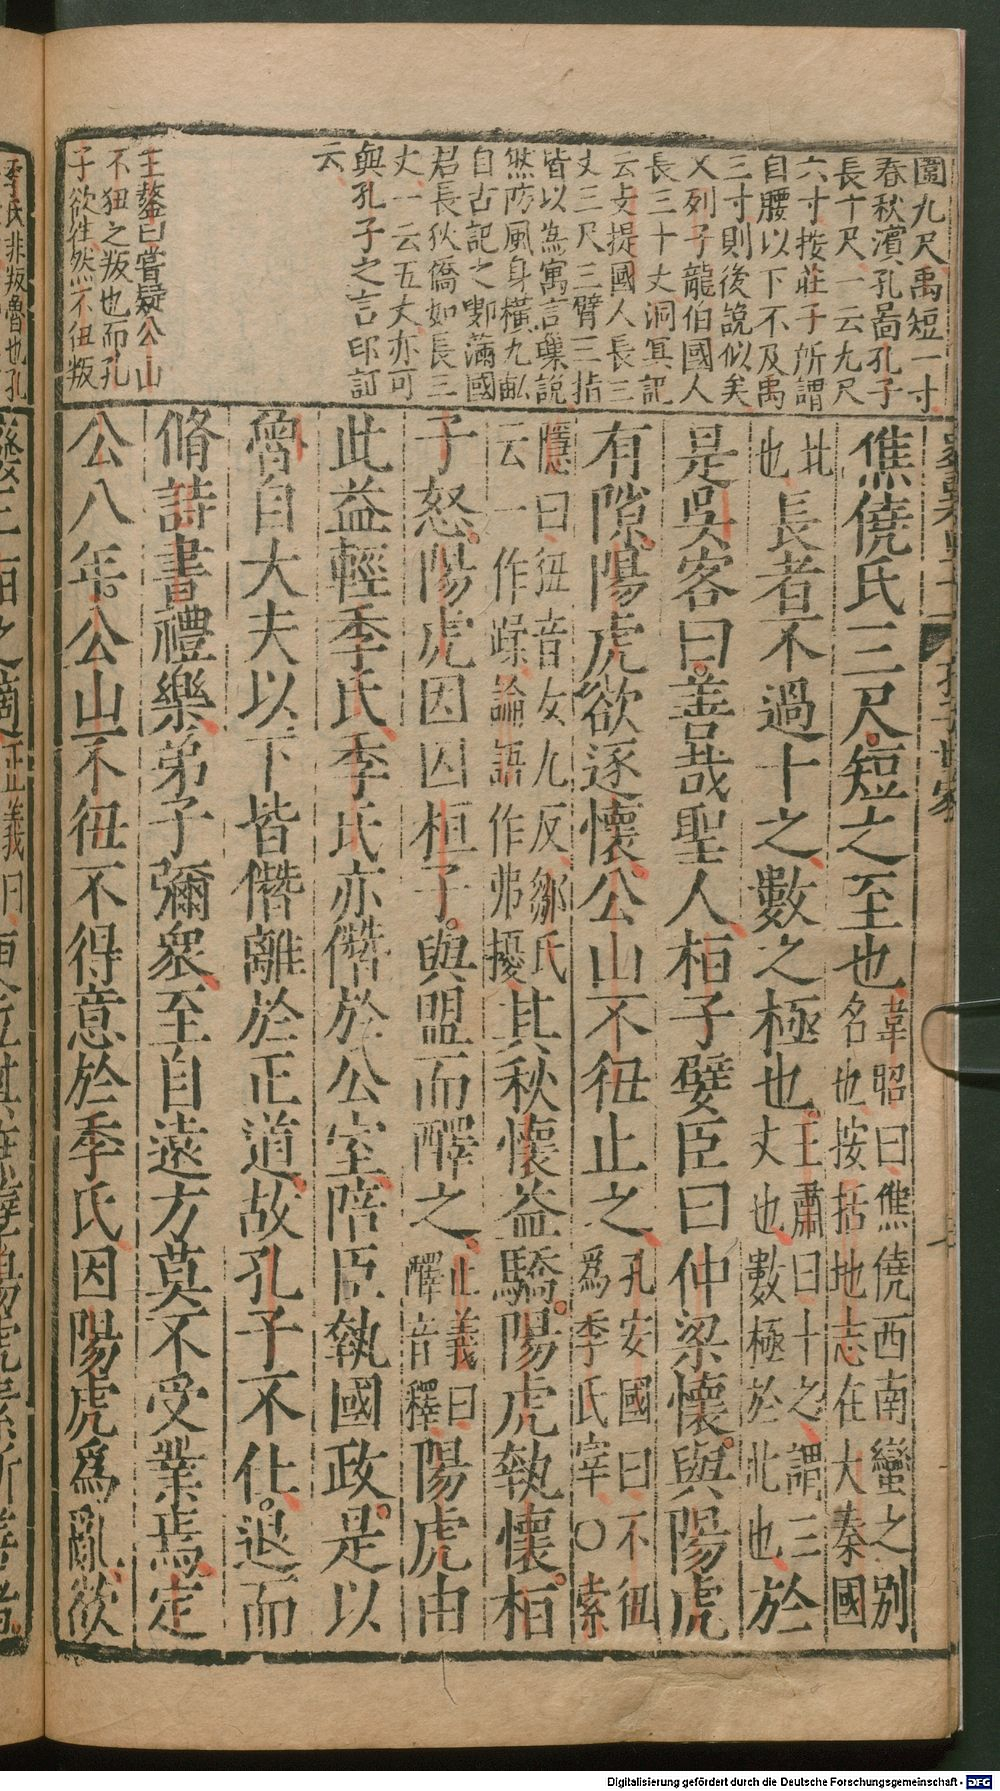 圍九尺禹短一寸
春秋濱孔畐孔子
長十尺一云九尺
六寸按莊子所謂
自腰以下不及禹
三寸則後說似矣
又列子龍伯國人
長三十丈洞冥記
云支提國人長三
丈三尺三臂三指
皆以為寓言集說
然防風身橫九畝
自古記之鄋瞞國
君長狄僑如長三
丈一云五丈亦可
與孔子之言印訂
云
王鏊曰嘗疑公山
不狃之叛也而孔
子欲往然不狃叛
僬僥氏三尺短之至也韋昭曰僬僥西南蠻之别
名也按括地志在大秦國
北
也長者不過十之數之極也王肅曰十之謂三
丈也數極於此也於
是吳客曰善哉聖人桓子嬖臣曰仲梁懷與陽虎
有隙陽虎欲逐懷公山不狃止之孔安國曰不狃
爲季氏宰○索
隱曰狃音女九反鄒氏
云一作蹂論語作弗擾其秋懷益驕陽虎執懷桓
子怒陽虎因囚桓子與盟而醳之正義曰
醳音釋陽虎由
此益輕季氏季氏亦僭於公室陪臣執國政是以
魯自大夫以下皆僭離於正道故孔子不仕退而
脩詩書禮樂弟子彌衆至自遠方莫不受業焉定
公八年公山不狃不得意於季氏因陽虎爲亂欲
季氏非叛魯也孔
Digitalisierung gefördert durch die Deutsche Forschungsgemeinschaft - DFG